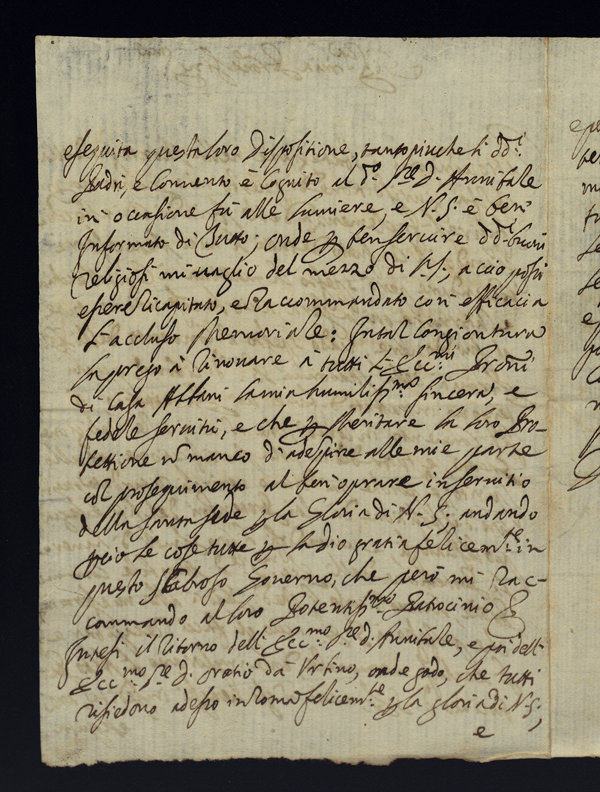 eseguita questa loro dispositione, tanto piu che li dd.i
Padri, e Convento è cognito al d.o S.re D. Annibale
in occasione fù alle Lumiere, e N. S. è ben
Informato di tutto; onde p ben servire dd.i buoni
religiosi mi vaglio del mezzo di V.S., acciò possi
essere ricapitato, e Raccommandato con efficacia
L'accluso Memoriale: In tal congiontura
La prego à rinovare à tutti L'Ecc.mi Sig.ri
di Casa Albani la mia humiliss.ma sincera, e
fedele servitù, e che p Meritare la loro Pro-
tettione nō manco d'adempire alle mie parte
col proseguimento al ben oprare in servitio
della Santa Sede p la Gloria di N. S., andando
p ciò le cose tutte p la Dio gratia felicem.te in
questo scabroso Governo, che però mi Rac-
commando al loro Potentiss.mo Patrocinio
Intesi il ritorno dell'Ecc.mo S.re D. Annibale, e poi dell'
Ecc.mo S.re D. Oratio da Urbino, onde godo, che tutti
risiedono adesso in Roma felicem.te p la gloria di N. S.,
e